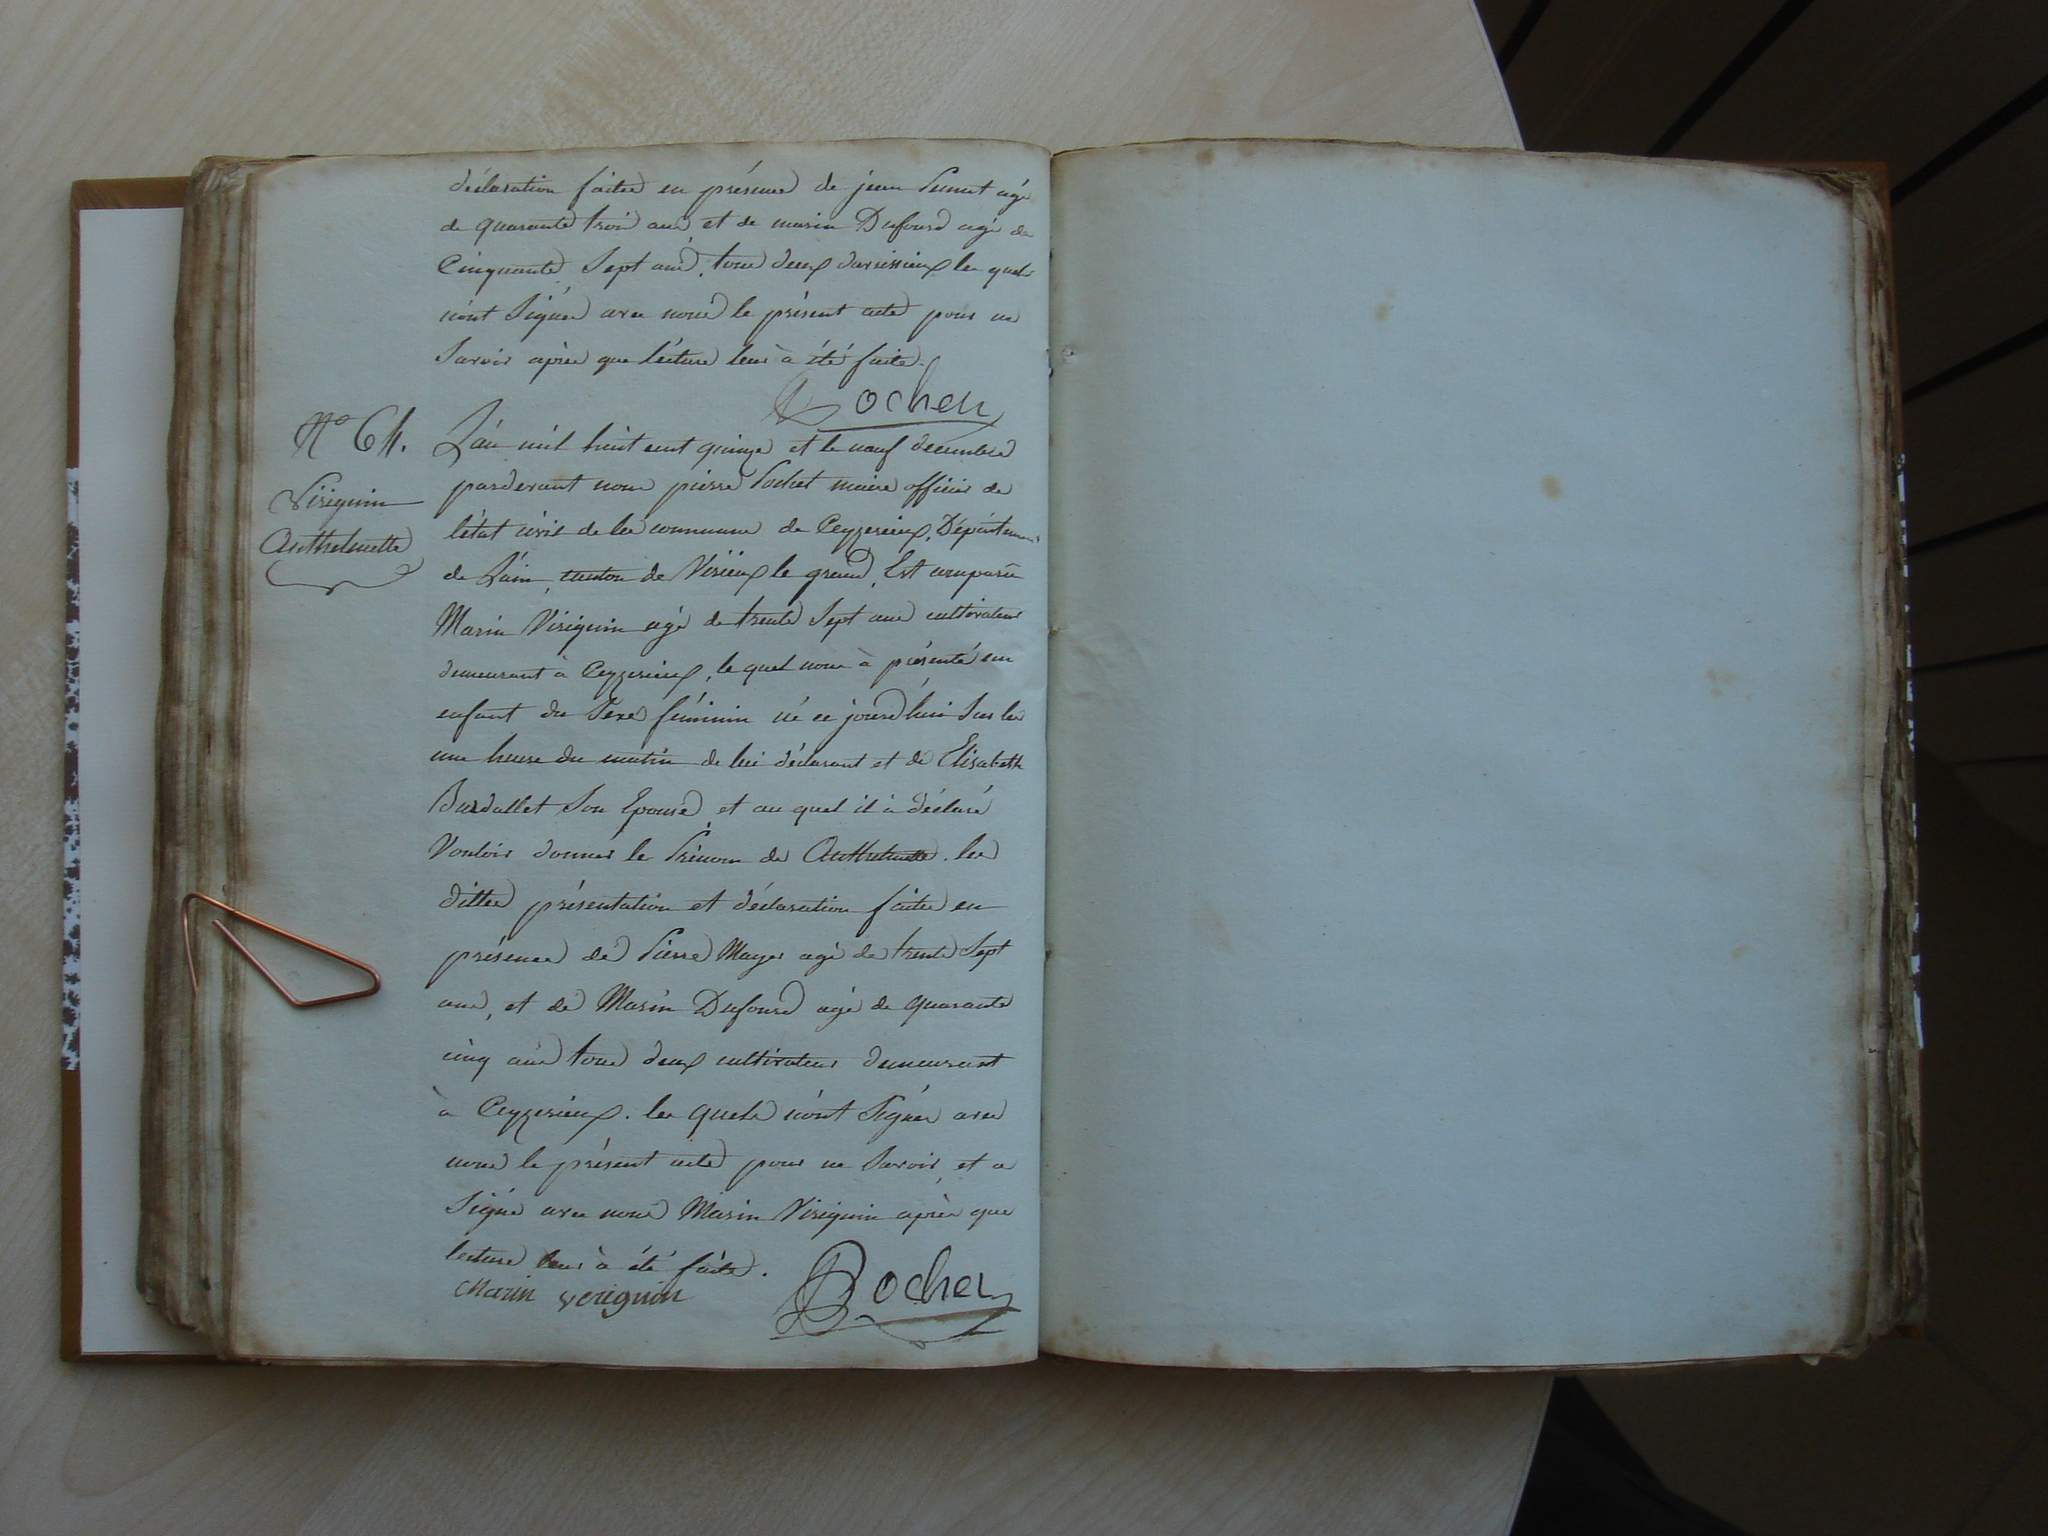 déclaration faitte en présence de jean agé
de quarante trois ans, et de marin Dufourd agé de
Cinquante Sept ans, tous deux les quels
n'ont Signés avec nous le présent acte pour ne
Savoir après que lécture leur à été faite.
Rochet
N.º 64.
Viriguin
Anthelmette
L'an mil huit cent quinze et le neuf decembre
pardevant nous pierre Rochet maire officier de
l'état civil de la commune de Ceyzerieux, Département
de L'ain, canton de Virieux le grand, Est comparu
Marin Viriguin agé de trente Sept ans cultivateur
demeurant à Ceyzerieux, le quel nous à présenté un
enfant du Sexe féminin né ce jourd'hui Sur les
une heure du matin de lui déclarant et de Elisabeth
Burdallet Son Epouse, et au quel il à déclaré
Vouloir donner le Prénom de Anthelmette. les
dittes présentation et déclaration faites en
présence de Pierre Mayer agé de trente Sept
ans, et de Marin Dufourd agé de quarante
cinq ans tous deux cultivateurs demeurant
à Ceyzerieux. les quels n'ont Signés avec
nous le présent acte pour ne Savoir, et a
Signé avec nous Marin Viriguin après que
lecture leur à été faite.
Marin verignin
Rochet